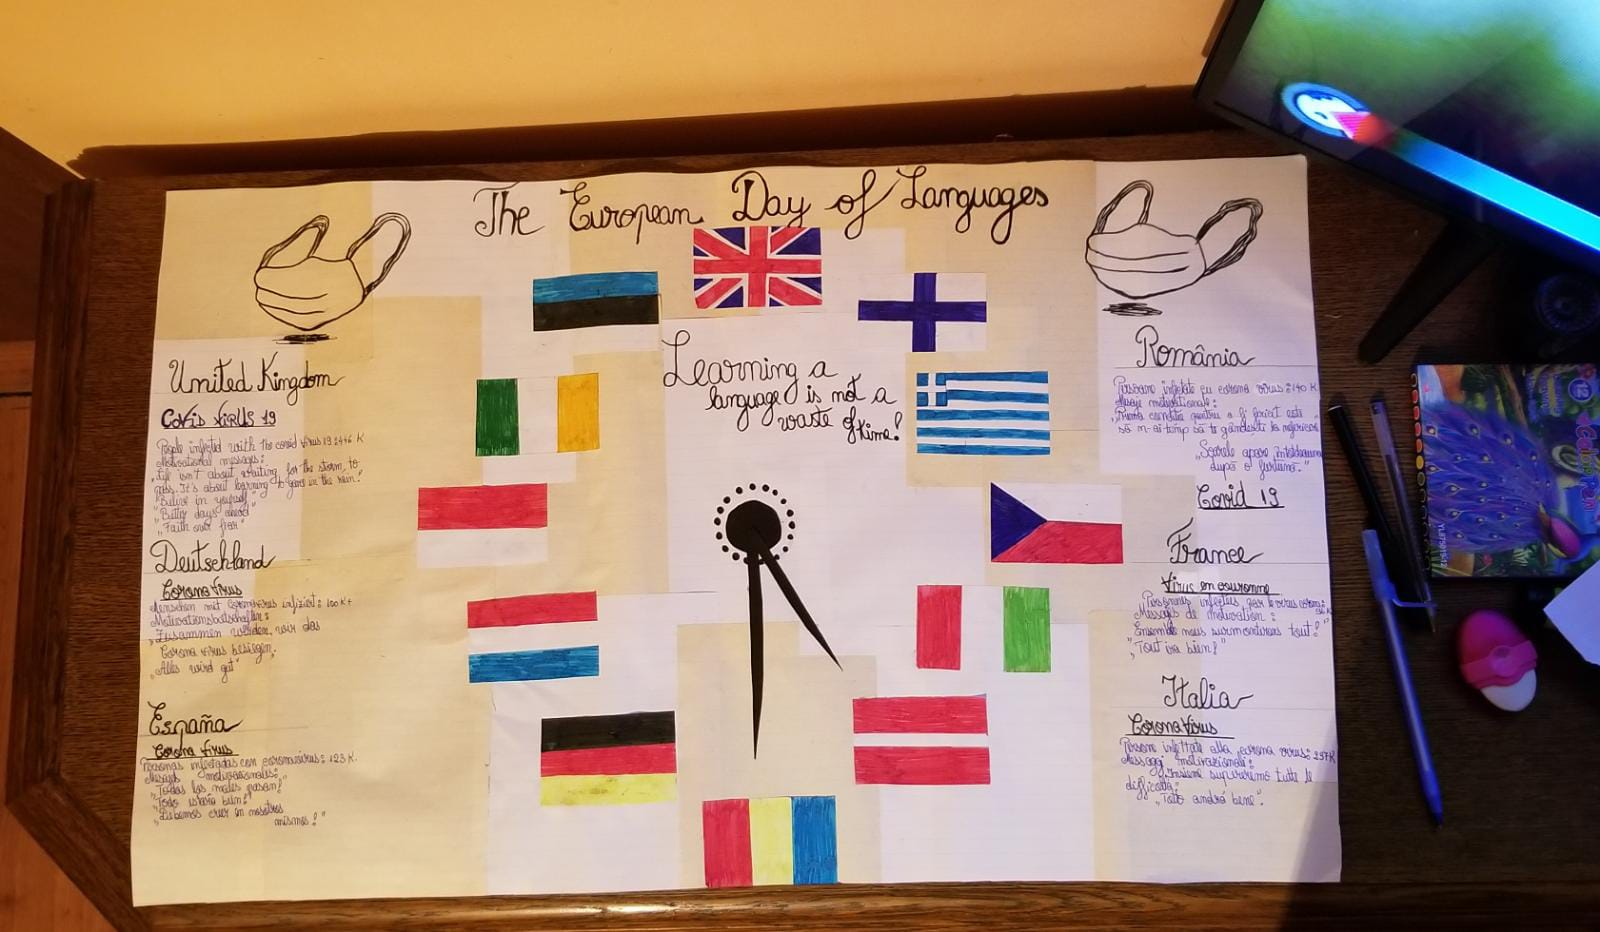 The European Day of Languages
Learning a
language is not a
waste of time!
United Kingdom
Covid virus 19
People infected with the covid virus 19: 446 K
Motivational messages:
„Life isn't about waiting for the storm to
pass. It's about learning to dance in the rain."
"Believe in yourself"
"Better days ahead"
„Faith over fear"
Deutschland
Corona Virus
Menschen mit Coronavirus infiziert: 100 K+
Motivationsbotschaften:
„Zusammen werden wir das
Corona virus besiegen."
„Alles wird gut"
España
Corona Virus
Personas infectadas con coronavirus: 123 K.
Mesajes motivacionales:
"Todos los males pasan!"
"Todo estara bien!"
"Debemos creer en nosotros
mismos!"
România
Persoane infectate cu corona virus: 140 K
Mesaje motivationale:
„Prima conditie pentru a fi fericit este
să n-ai timp să te gândești la nefericire
„Soarele apare întotdeauna
după o furtună."
Covid 19
France
Virus en couronne
Personnes infectées par le virus corona:
Messages de motivation:
Ensemble nous surmonterons tout!"
„Tout ira bien!"
Italia
Corona Virus
Persone infettate alla corona virus: 297K
Messaggi motivazionali:
„Insieme supereremo tutte le
difficoltà"
„Tutto andrà bene".
12
Color Pen